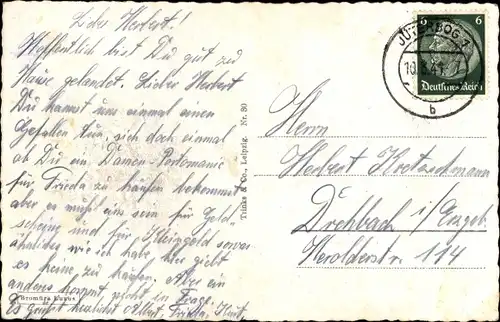 Lieber Herbert!
Hoffentlich bist Du gut zu
Hause gelandet. Lieber Herbert
Du kannst uns einmal einen
Gefallen tun, sieh doch einmal
ob Du ein Damen-Portmonaie
für Frieda zu kaufen bekommst
aber es muß eins sein für Geld-
scheine und für Kleingeld so was
ähnliches wie ich habe, hier giebt
es keine zu kaufen. Aber ein
anderes kommt nicht in Frage.
Es Grüßt herzlichst Albert, Frieda, Kurt,
Bromüra Karte
Trinks & Co., Leipzig. Nr. 80
JÜTERBOG 1
10.
41
b
6 6
Deutsches Reich
Herrn
Herbert
Drehbach i/Erzgeb.
Herolderstr. 114